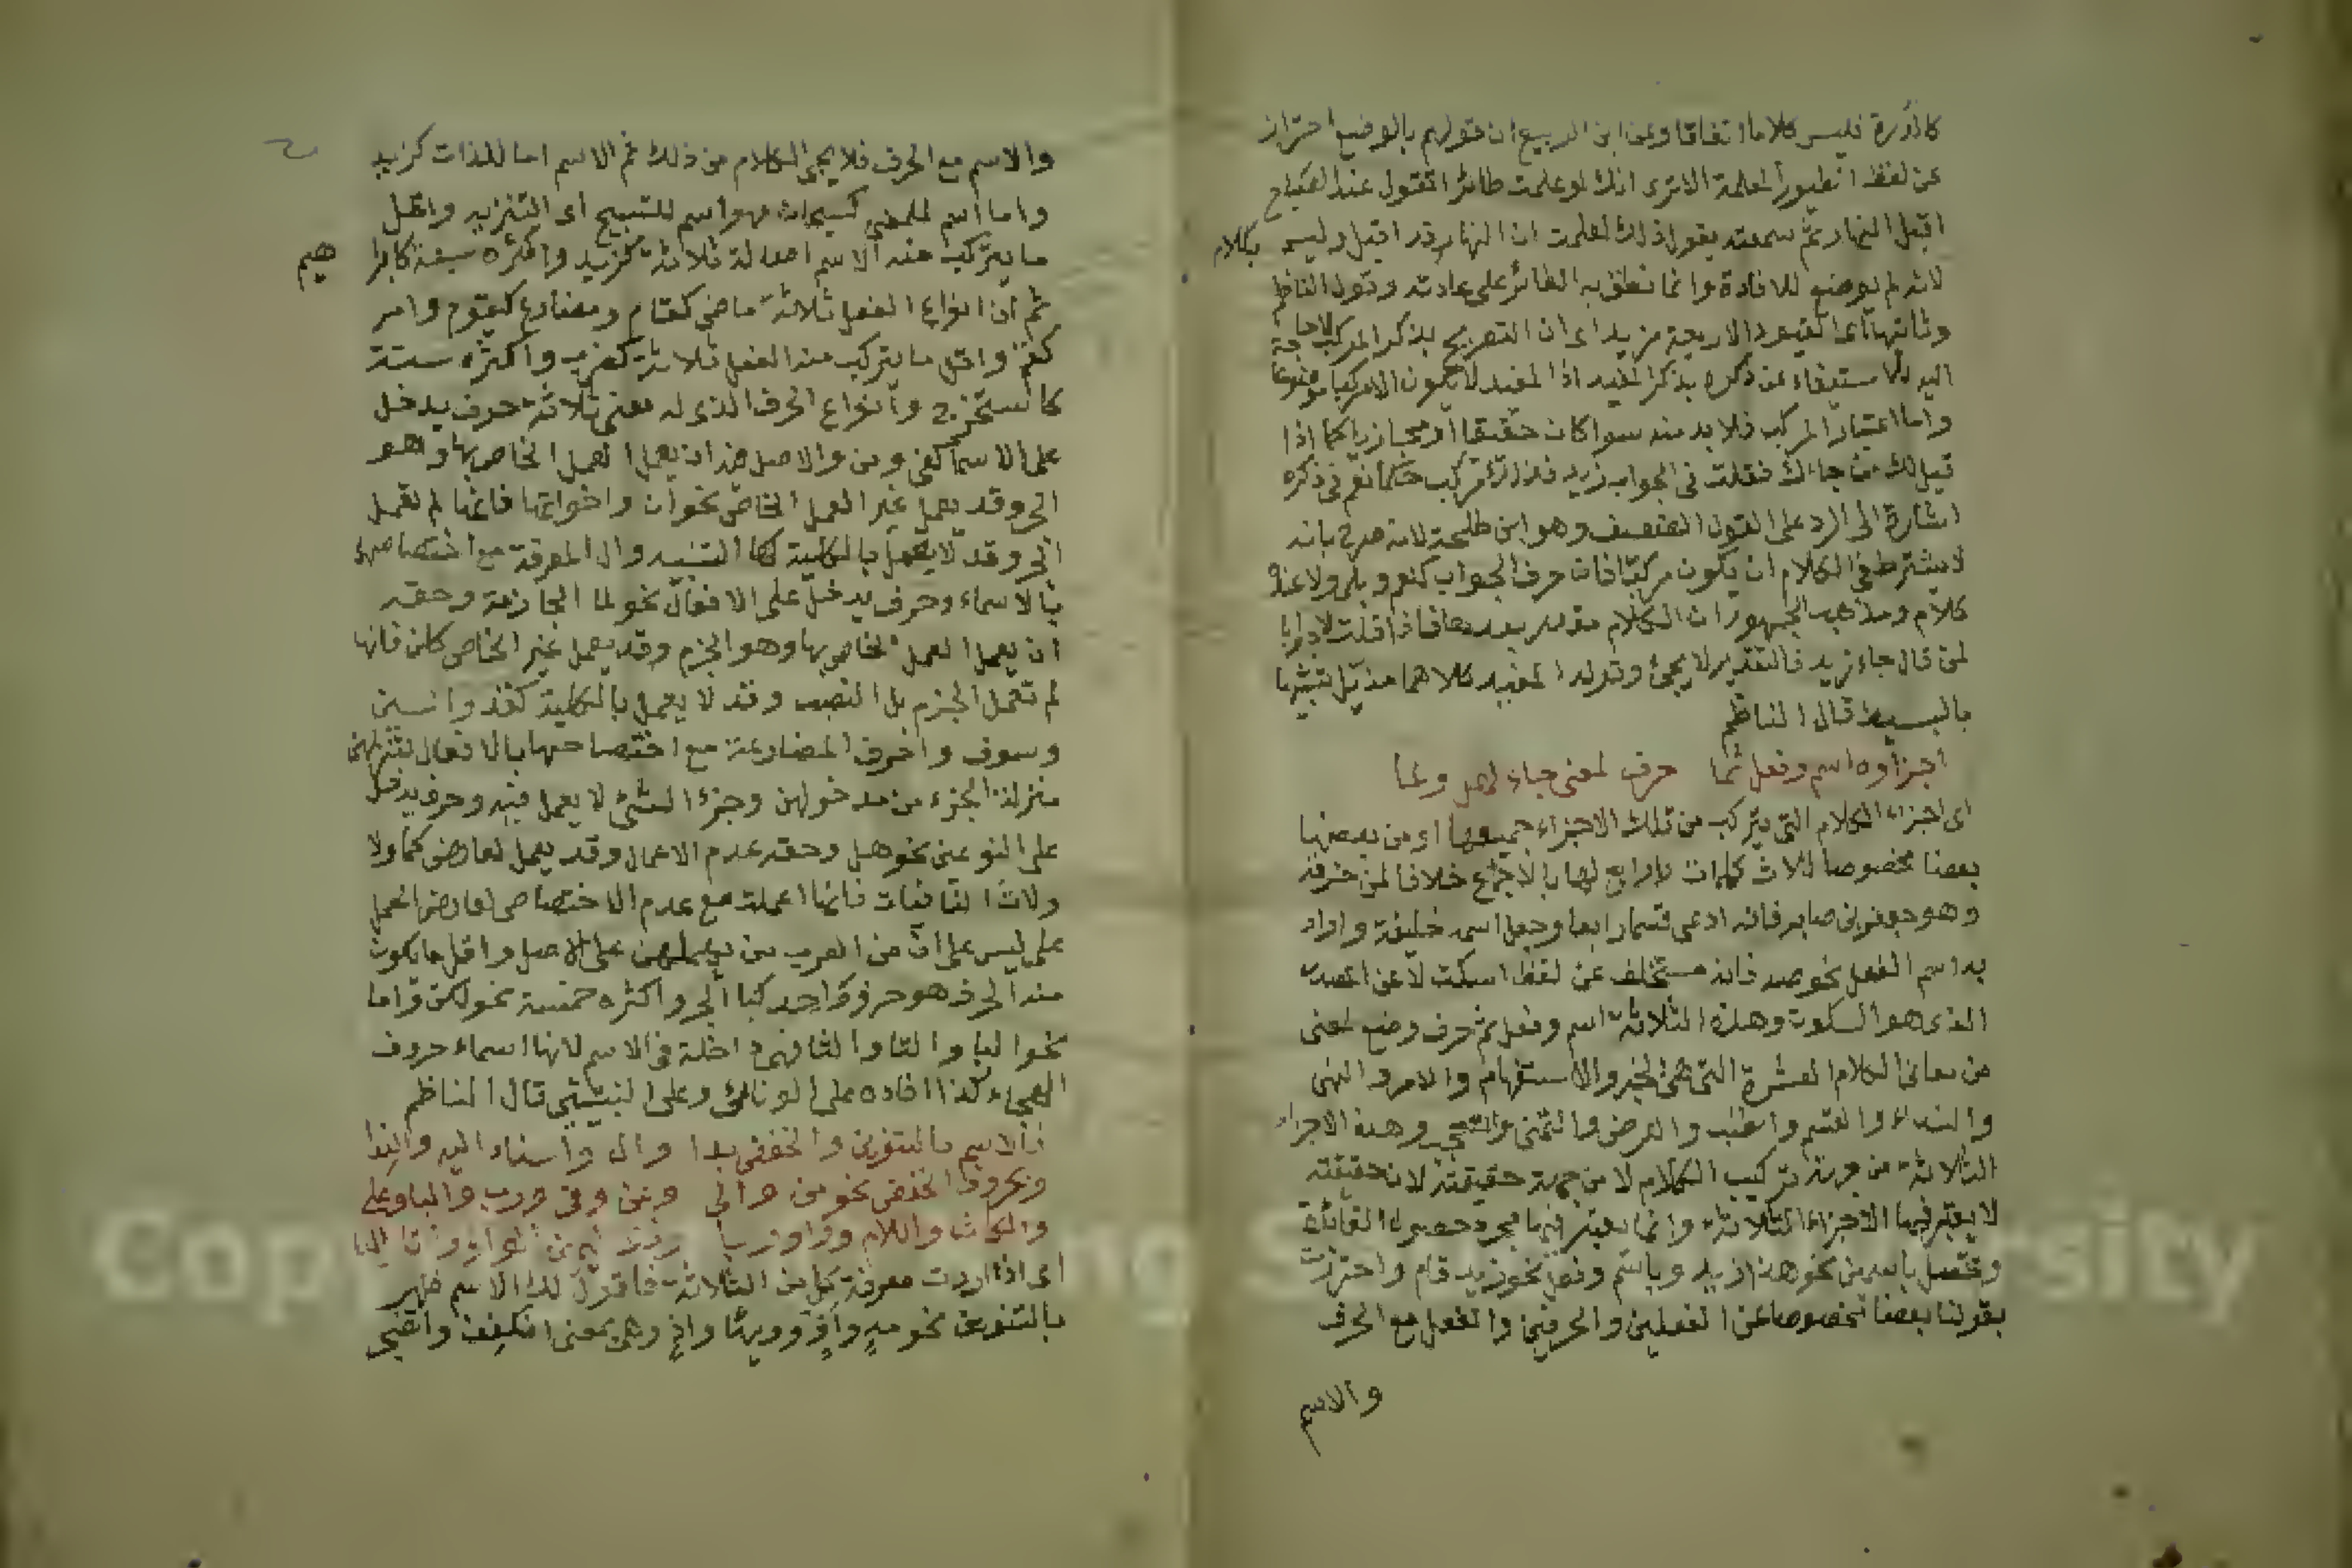 كالذرة فليس كلاما اتفاقا وعن ابن الربيع ان قولهم بالوضع احتراز
عن لفظ الطيور المعلمة الا ترى انك لو علمت طائرا تقول عند الصباح
اقبل النهار ثم سمعته يقول ذلك لعلمت ان النهار قد اقبل وليس بكلام
لانه لم يوضع للافادة وانما نطق به الطائر على عادته وقول الناظم
القيود الاربعة مزيد اي ان التصريح بذكر المركب لا حاجة
اليه للاستيفاء عن ذكره بذكر المفيد اذ المفيد لا يكون الا مركبا
واما اعتبار المركب فلا بد منه سوا كان حقيقيا او مجازيا كما اذا
قيل لك من جاءك فقلت في الجواب زيد تركيب حكما نعم في ذكره
اشارة الى الرد على القول الضعيف وهو ابن طلحة لانه صرح بانه
لا يشترط في الكلام ان يكون مركبا فان حرف الجواب كنعم وبلى ولا عنده
كلام ومذهب الجمهور ان الكلام مقدر بعدها فاذا قلت لا جوابا
لمن قال جاء زيد فالتقدير لا يجئ وقوله المفيد كلاهما
بالبسيط قال الناظم
اجزاؤه اسم وفعل ثما حرف لمعنى جاء لهل ولما
اي اجزاء الكلام التي يتركب من تلك الاجزاء جميعها او من بعضها
بعضا مخصوصا ثلاث كلمات لا رابع لها بالاجماع خلافا لمن خرقه
وهو جعفر بن صابر فانه ادعى قسما رابعا وجعل اسمه خليفة واراد
به اسم الفعل نحو صه فانه مستخلف عن لفظ اسكت لا عن المصدر
الذي هو السكوت وهذه الثلاثة اسم وفعل ثم حرف وضع لمعنى
من معاني الكلام العشرة التي هي الخبر والاستفهام والامر والنهي
والنداء والقسم والطلب والعرض والتمني والتعجب وهذه الاجزاء
الثلاثة من جهة تركيب الكلام لا من جهة حقيقته لان حقيقته
لا يعتبر فيها الاجزاء الثلاثة وانما يعتبر فيها مجرد حصول الفائدة
وتحصل باسمين نحو هذا زيد وباسم وفعل نحو زيد قام واحترزت
بقولنا بعضا مخصوصا عن الفعلين والحرفين والفعل مع الحرف
والاسم
والاسم مع الحرف فلا يجئ الكلام من ذلك ثم الاسم اما للذات كزيد
واما اسم لمعنى كسبحان فهو اسم للتسبيح اي التنزيه واقل
ما يتركب منه الاسم اصالة ثلاثة كزيد واكثره سبعة كابرا
هيم
ثم ان انواع الفعل ثلاثة ماضي كقام ومضارع كيقوم وامر
كقم واقل ما يتركب منه الفعل ثلاثة كضرب واكثره ستة
كاستخرج وانواع الحرف الذي له معنى ثلاثة حرف يدخل
على الاسما كفي ومن والاصل فيه ان يعمل العمل الخاص بها وهو
الجر وقد يعمل غير العمل الخاص نحو ان واخواتها فانها لم تعمل
الجر وقد لا يعمل بالكلية كها التنبيه وال المعرفة مع اختصاصهما
بالاسماء وحرف يدخل على الافعال نحو لما الجازمة وحقه
ان يعمل العمل الخاص بها وهو الجزم وقد يعمل غير الخاص كلن فانها
لم تعمل الجزم بل النصب وقد لا يعمل بالكلية كقد والسين
وسوف واحرف المضارعة مع اختصاصها بالافعال لتنزلهن
منزلة الجزء من مدخولهن وجزء الشئ لا يعمل فيه وحرف يدخل
على النوعين نحو هل وحقه عدم الاعمال وقد يعمل لعارض كما ولا
ولات النافيات فانها اعملت مع عدم الاختصاص لعارض الحمل
على ليس على ان من العرب من يهملهن على الاصل واقل ما يكون
منه الحرف هو حرف واحد كبا الجر واكثره خمسة نحو لكن واما
نحو البا والتا والثا فهي داخلة في الاسم لانها اسماء حروف
الهجاء كذا افاده على الونائي وعلى النبتيتي قال الناظم
فالاسم بالتنوين والخفض بدا وال واسناد اليه والندا
وبحروف الخفض نحو من والى وعن وفي ورب والبا وعلى
والكاف واللام
اي اذا اردت معرفة كل من الثلاثة فاقول لك الاسم ظهر
بالتنوين نحو